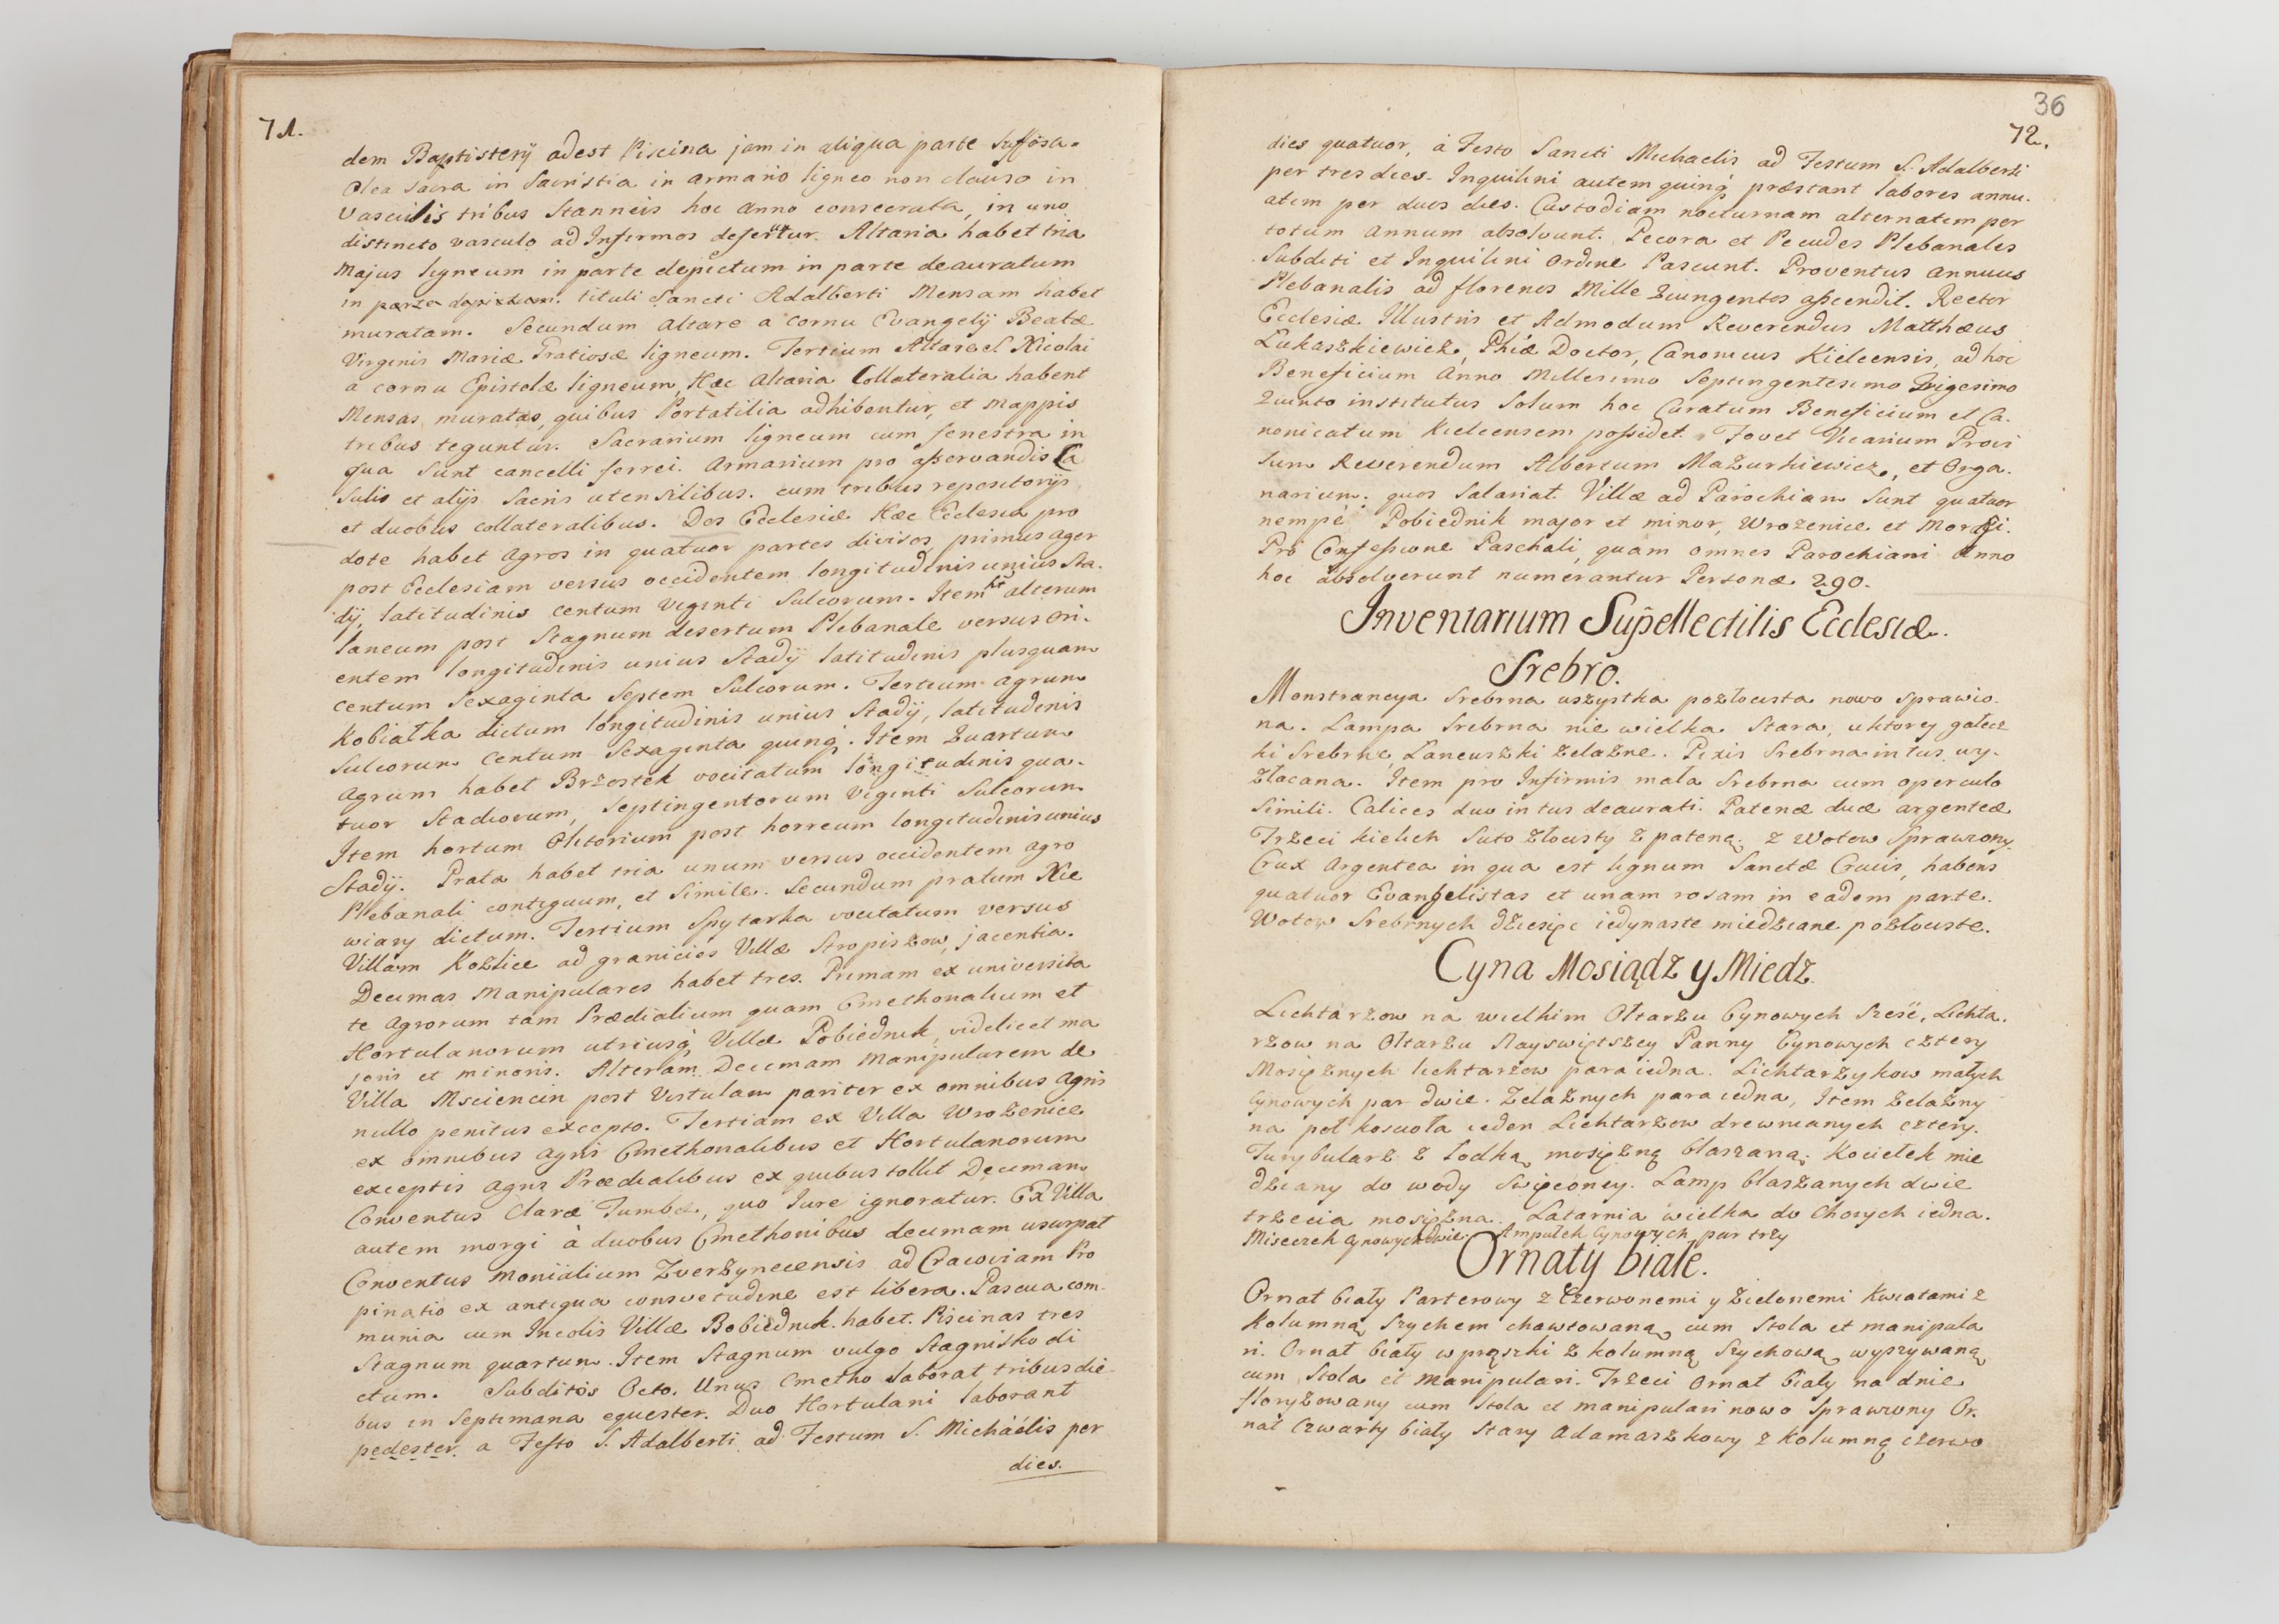 71.
dem Baptisterÿ adest Piscina jam in aliqua parte suffosa.
Olea sacra in Sacristia in armario ligneo non clauso in
vasculis tribus Stanneis hoc anno consecrata, in uno
distincto vasculo ad Infirmos defertur. Altaria habet tria
Majus ligneum in parte depictum in parte deauratum
in parte depictum. tituli Sancti Adalberti Mensam habet
muratam. Secundum altare a cornu Evangelÿ Beatæ
Virginis Mariæ Gratiosæ ligneum. Tertium Altare S. Nicolai
a cornu Epistolæ ligneum, Hæc altaria Collateralia habent
Mensas muratas, quibus Portatilia adhibentur, et Mappis
tribus teguntur. Sacrarium ligneum cum fenestra in
qua sunt cancelli ferrei. Armarium pro asservandis Ca
sulis et alijs Sacris utensilibus. cum tribus repositorijs
et duobus collateralibus. Dos Ecclesiæ Hæc Ecclesia pro
dote habet agros in quatuor partes divisos, primus ager
post Ecclesiam versus occidentem longitudinis unius Sta.
dÿ, latitudinis centum viginti Sulcorum. Item ht alterum
laneum post Stagnum desertum Plebanale versus ori.
entem longitudinis unius Stadÿ latitudinis plusquam
centum Sexaginta Septem Sulcorum. Tertium agrum
Kobiałka dictum longitudinis unius Stadÿ, latitudinis
Sulcorum centum Sexaginta quinq. Item Quartum
agrum habet Brzostek vocitatum longitudinis qua.
tuor Stadiorum, Septingentorum viginti Sulcorum
Item hortum Olitorium post horreum longitudinis unius
Stadÿ. Prata habet tria unum versus occidentem agro
Plebanali contiguum, et simile. Secundum pratum Nie
wiary dictum. Tertium Spytarka vocitatum versus
Villam Kozlice ad granicies Villæ Stropiszow, jacentia.
Decimas Manipulares habet tres. Primam ex universita
te Agrorum tam Prædialium quam Cmethonalium et
Hortulanorum utriusq Villæ Pobiednik, videlicet ma
joris et minoris. Alteram Decimam Manipularem de
Villa Msciencin post Vistulam pariter ex omnibus agris
nullo penitus excepto. Tertiam ex Villa Wrozenice
ex omnibus agris Cmethonalibus et Hortulanorum
exceptis agris Prædialibus ex quibus tollit Decimam
Conventus Claræ Tumbæ, quo Jure ignoratur. Ex Villa
autem morgi à duobus Cmethonibus decimam usurpat
Conventus Monialium Zverzynecensis ad Cracoviam Pro
pinatio ex antiqua consvetudine est libera. Pascua com-
munia cum Incolis Villæ Bobiednik habet. Piscinas tres
Stagnum quartum. Item Stagnum vulgo Stagnisko di
ctum. Subditos Octo. Unus Cmetho laborat tribus die
bus in Septimana equester. Duo Hortulani laborant
pedester. a Festo S. Adalberti ad Festum S. Michaélis per
dies.
36
72.
dies quatuor, à Festo Sancti Michaelis ad Festum S. Adalberti
per tres dies. Inquilini autem quinq præstant labores annu.
atim per duos dies. Custodiam nocturnam alternatim per
totum annum absolvunt. Pecora et Pecudes Plebanales
Subditi et Inquilini ordine Pascunt. Proventus annuus
Plebanalis ad florenos Mille Quingentos ascendit. Rector
Ecclesiæ Illustris et Admodum Reverendus Matthæus
Łukaszkiewicz, Phiæ Doctor, Canonicus Kielcensis, ad hoc
Beneficium Anno Millesimo Septingentesimo Vigesimo
Quinto institutus Solum hoc Curatum Beneficium et Ca.
nonicatum Kielcensem possidet. Fovet Vicarium Provi
sum Reverendum Albertum Mazurkiewicz, et Orga.
narium. quos Salariat. Villæ ad Parochiam Sunt quatuor
nempè Pobiednik major et minor, Wrozenice et Morgi.
Pro Confessione Paschali, quam omnes Parochiani Anno
hoc absolverunt numerantur Personæ 290.
Inventarium Supellectilis Ecclesiæ.
Srebro.
Monstrancya Srebrna wszystka pozłocista nowo sprawio.
na. Lampa Srebrna nie wielka Stara, u ktorey gałecz
ki srebrne, Łancuszki zelazne. Pixis Srebrna intus wy.
złacana. Item pro Infirmis mała Srebrna cum operculo
simili. Calices duo intus deaurati. Patenæ duæ argenteæ
Trzeci kielich Suto złocisty z pateną. z Wotow Sprawiony.
Crux Argentea in qua est lignum Sanctæ Crucis, habens
quatuor Evangelistas et unam rosam in eadem parte.
Wotow Srebrnych dziesięc iedynaste miedziane pozłociste.
Cyna Mosiądz y Miedz.
Lichtarzow na wielkim Ołtarzu Cynowych Sześć, Lichta.
rzow na Ołtarzu Nayswiętszey Panny Cynowych cztery
Mosięznych lichtarzow para iedna. Lichtarzykow małych
Cynowych par dwie. Zelaznych para iedna, Item Zelazny
na poł koscioła ieden Lichtarzow drewnianych cztery.
Turybularz z łodką mosięzną blaszaną. Kociełek mie
dziany do wody Swięconey. Lamp blaszanych dwie
trzecia mosięzna. Latarnia wielka do Chorych iedna.
Miseczek Cynowych dwie. Ampułek Cynowych par trzy
Ornaty białe.
Ornat biały Parterowy z Czerwonemi y Zielonemi Kwiatami z
Kolumną Szychem chawtowaną, cum Stola et manipula
ri. Ornat biały w prąszki z kolumną Szychową, wyszywaną
cum Stola et Manipulari. Trzeci Ornat biały na dnie
floryzowany cum Stola et manipulari nowo sprawiony Or.
nat Czwarty biały Stary Adamaszkowy z kolumną czerwo